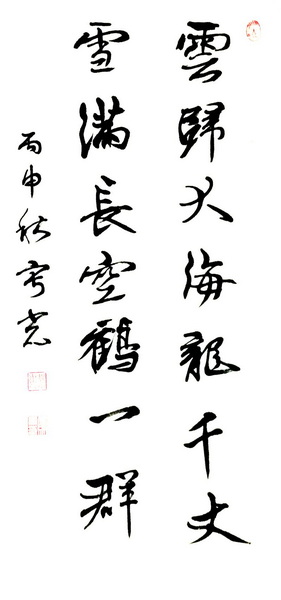 雲歸大海龍千丈
雪滿長空鶴一群
丙申秋